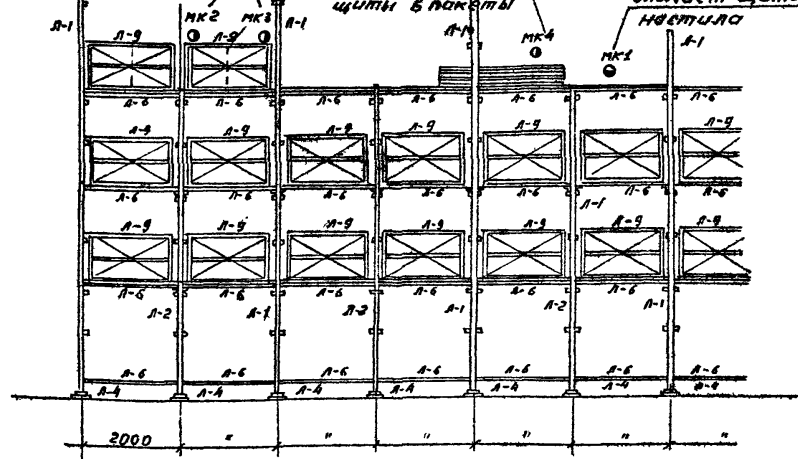 щиты в пакеты
настила
МК2 МК3 МК4 МК1
Л-1 Л-1 Л-1 Л-1
Л-9 Л-9
Л-6 Л-6 Л-6 Л-6 Л-6 Л-6 Л-6
Л-9 Л-9 Л-9 Л-9 Л-9 Л-9 Л-9
Л-6 Л-6 Л-6 Л-6 Л-6 Л-6 Л-6
Л-1
Л-9 Л-9 Л-9 Л-9 Л-9 Л-9 Л-9
Л-6 Л-6 Л-6 Л-6 Л-6 Л-6 Л-6
Л-2 Л-1 Л-2 Л-1 Л-2 Л-1
Л-6 Л-6 Л-6 Л-6 Л-6 Л-6 Л-6
Л-4 Л-4 Л-4 Л-4 Л-4 Л-4 Л-4
2000 " " " " " "